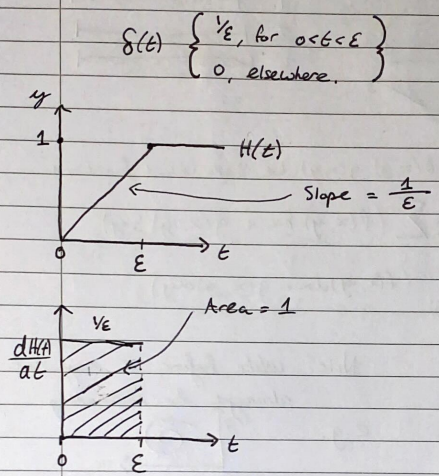 δ(t) { 1/ε, for 0<t<ε
0, elsewhere. }
y
1
H(t)
Slope = 1/ε
0 ε t
Area = 1
1/ε
dH(t)/dt
0 ε t